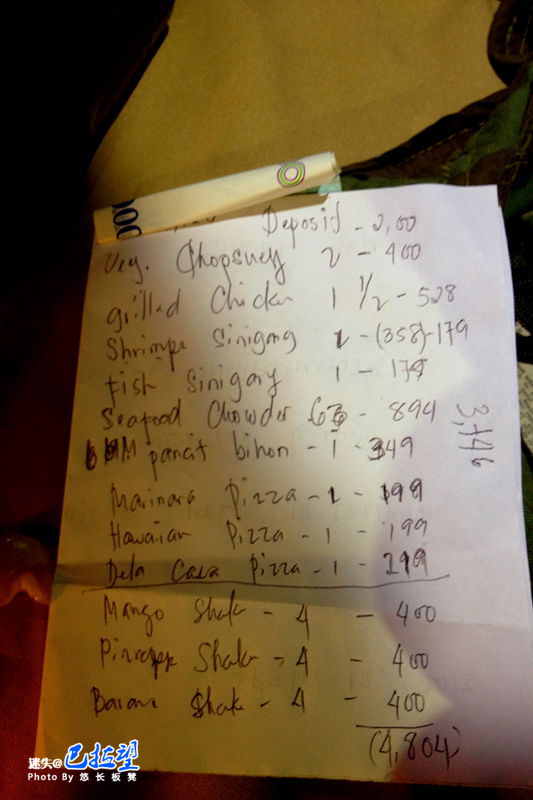 Deposit - 2,00
Veg. Chopsuey 2 - 400
grilled Chicken 1 1/2 - 528
Shrimps Sinigang 1 - (358) - 179
fish Sinigang 1 - 179
Seafood Chowder 6 - 894
pancit bihon - 1 - 349
3,446
Marinara Pizza - 1 - 199
Hawaiian Pizza - 1 - 199
Dela Casa Pizza - 1 - 219
Mango Shake - 4 - 400
Pineapple Shake - 4 - 400
Banana Shake - 4 - 400
(4,804)
迷失@巴拉望
Photo By 悠长板凳